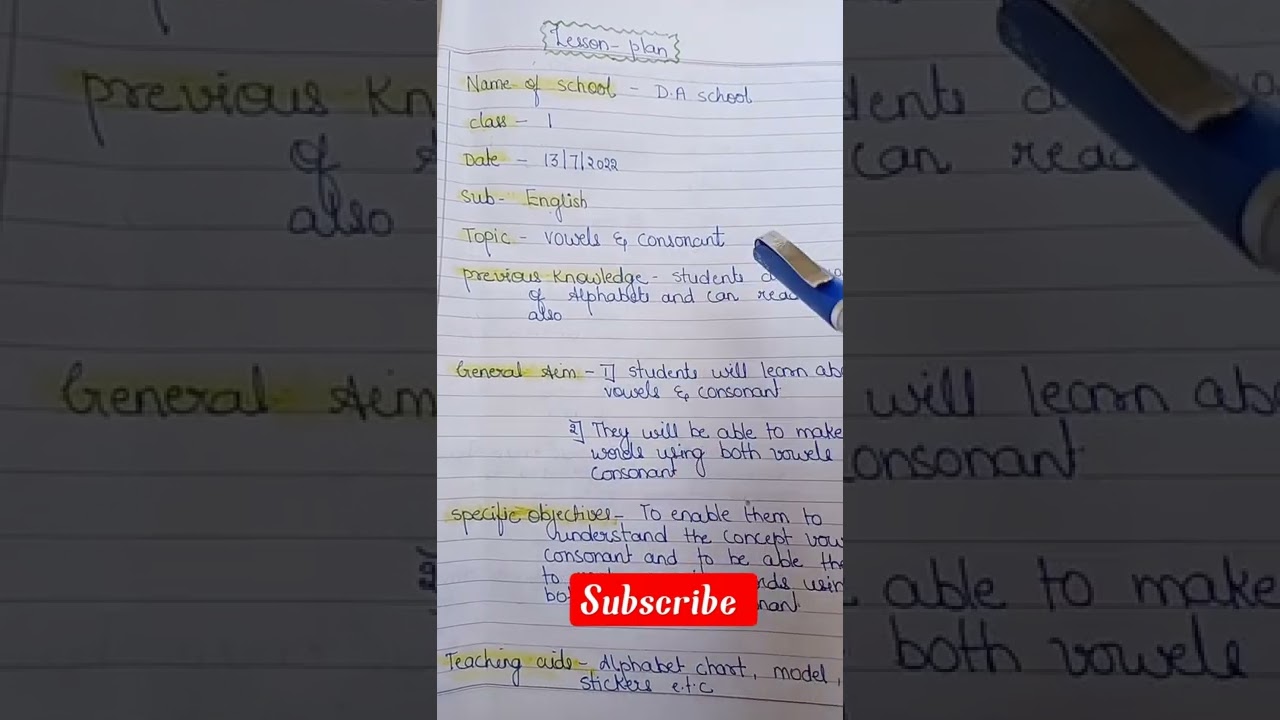 Lesson-plan
Name of school - D.A school
class - 1
Date - 13/7/2022
Sub- English
Topic - vowels & consonant
previous knowledge - students
of Alphabets and can
also
General Aim - 1] students will learn
vowels & consonant
2] They will be able to make
words using both vowels
consonant
specific objectives - To enable them to
understand the concept
consonant and to be able
to
Subscribe
Teaching aids - Alphabet chart, model,
stickers e.t.c